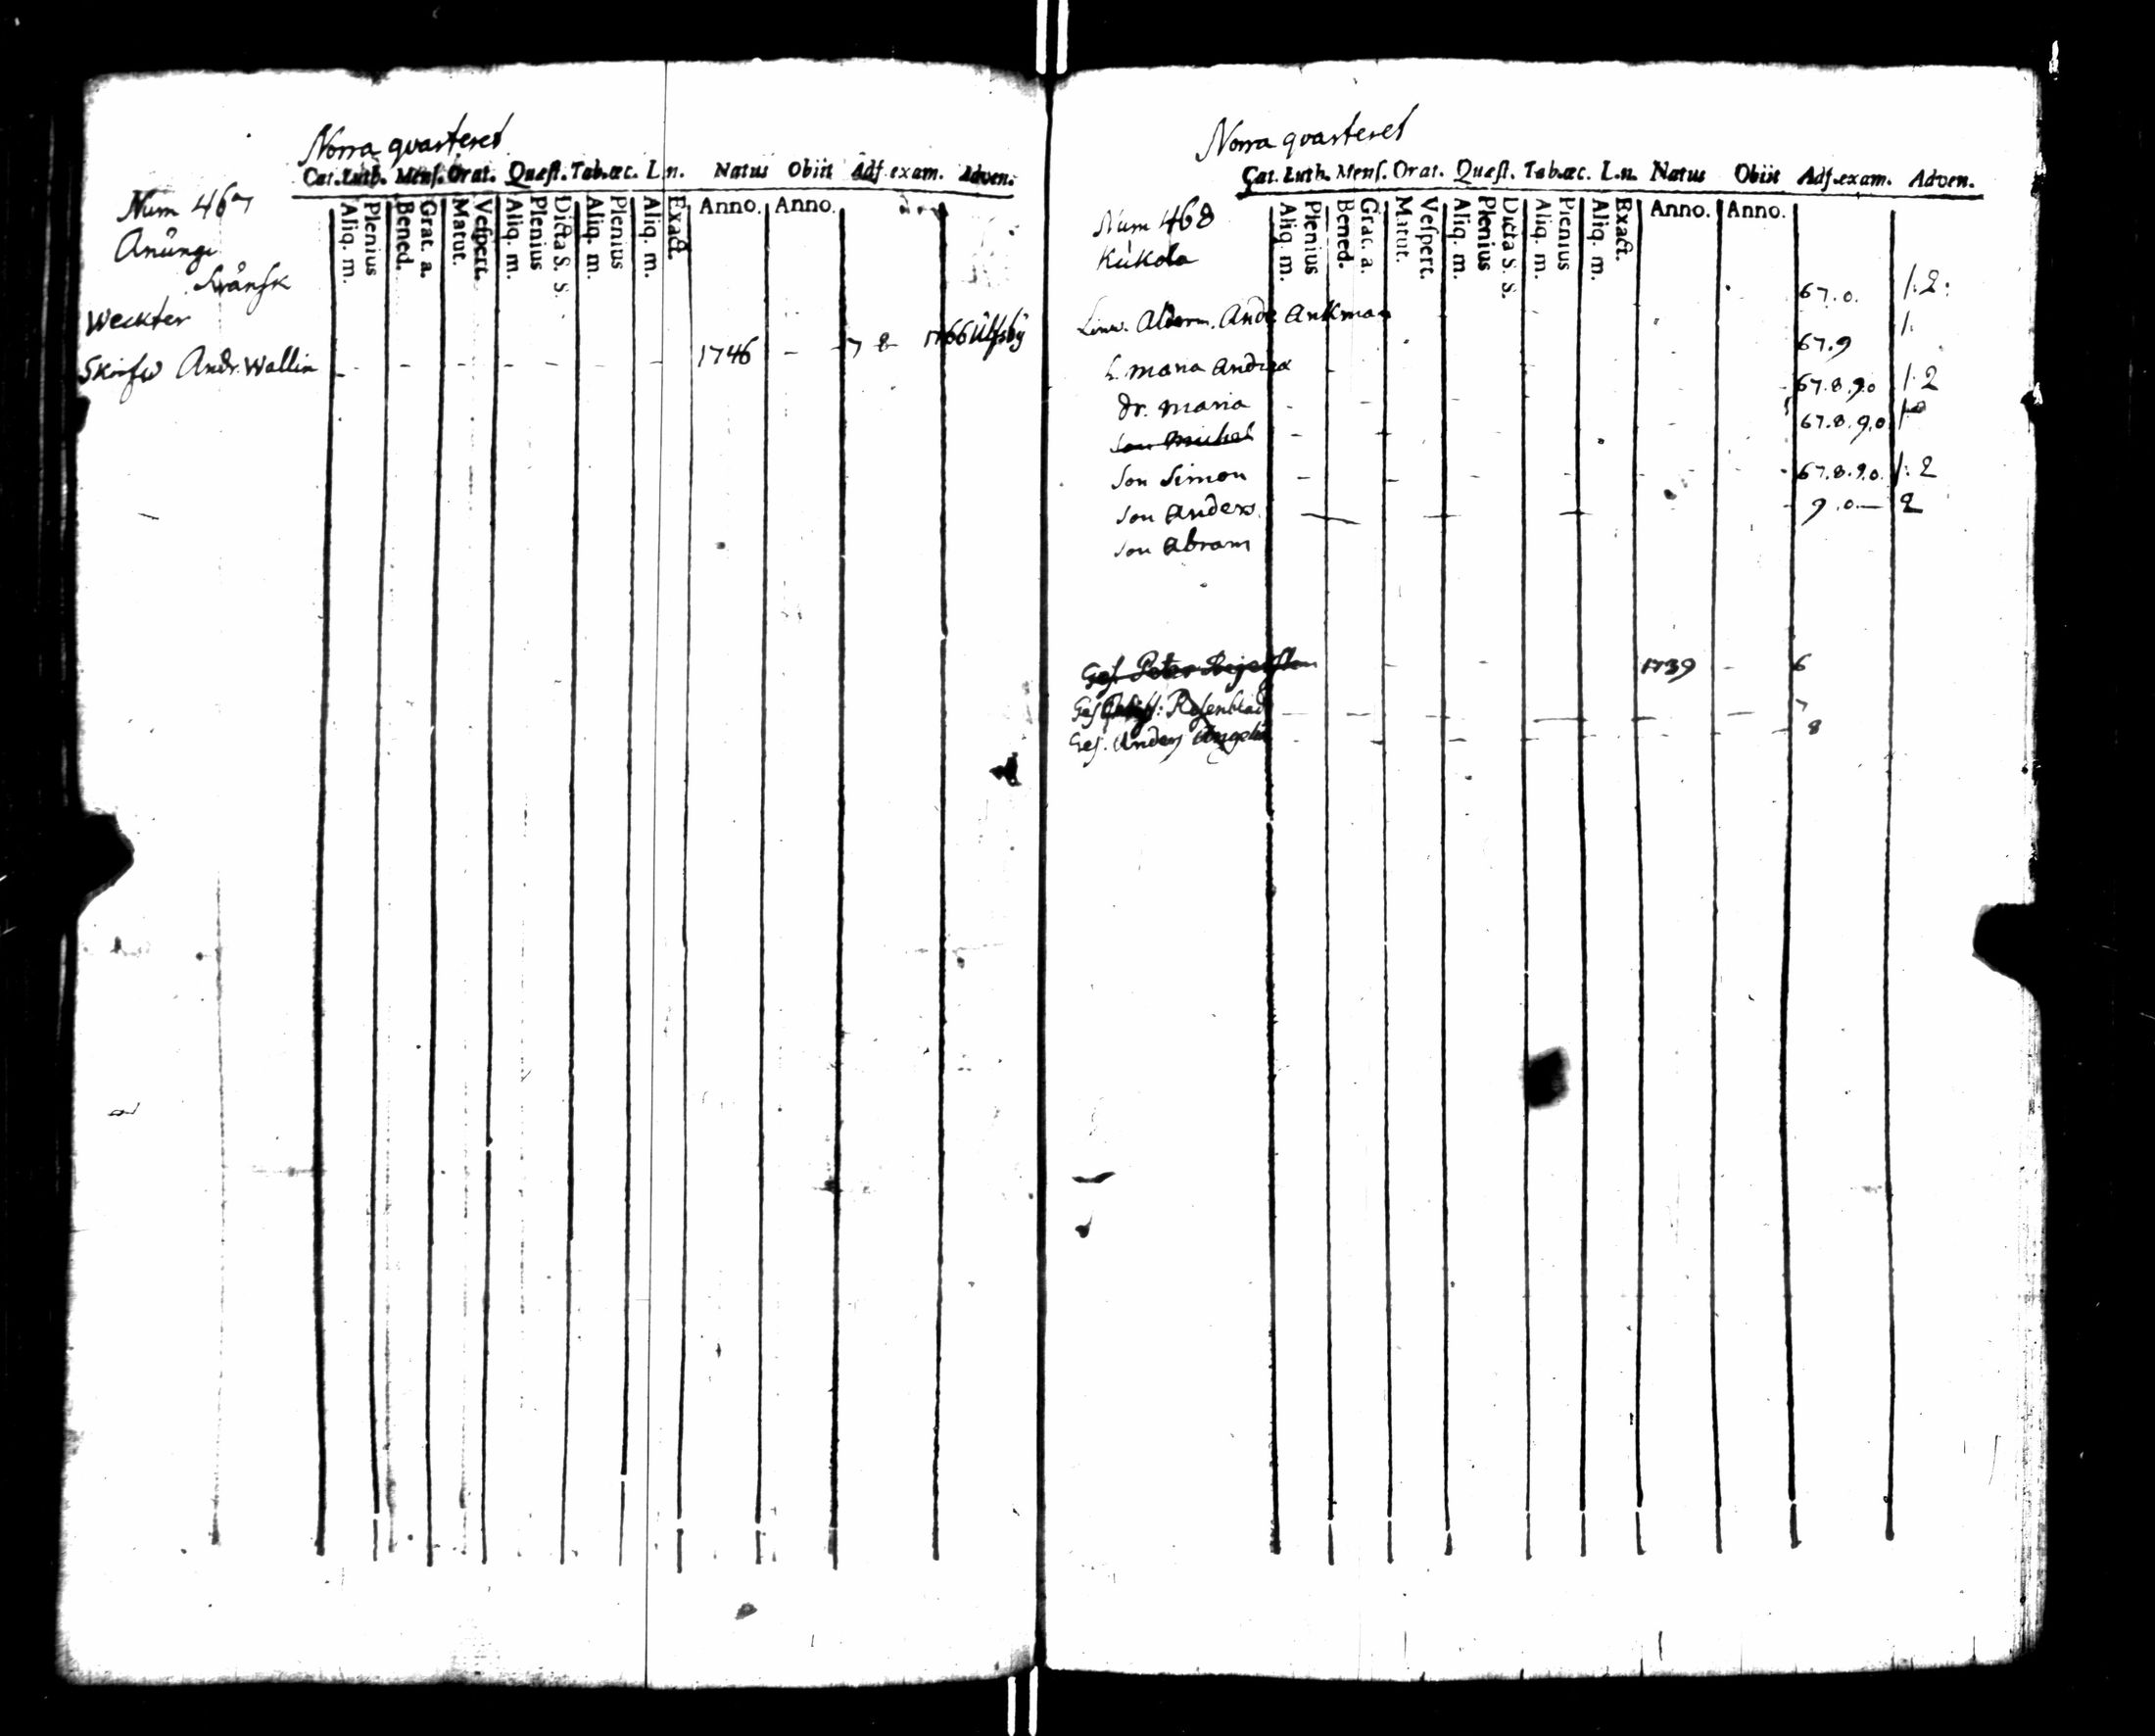 Norra qvarteret
Cat. Luth. Mens. Orat. Quæst. Tab. œc. L. n. Natus Obiit Adf. exam. Adven.
Num 467
Aliq. m. Plenius Bened. Grat. a. Matut. Vespert. Aliq. m. Plenius Dicta S. S. Aliq. m. Plenius Aliq. m. Exact. Anno. Anno.
Anungi
Svånsk
Weckter
Skrifw Andr. Wallin 1746 7 8 1766 Ulfsby
Norra qvarteret
Cat. Luth. Mens. Orat. Quæst. Tab. œc. L. n. Natus Obiit Adf. exam. Adven.
Num 468
Aliq. m. Plenius Bened. Grac. a. Matut. Vespert. Aliq. m. Plenius Dicta S. S. Aliq. m. Plenius Aliq. m. Exact. Anno. Anno.
Kukola
Alderm. Andr Ankman 67.0. 1.2:
h. Maria Andrsd 67.9 1.
dr. Maria 67.8.9.0 1.2
son Michel 67.8.9.0
son Simon 67.8.9.0. 1.2
son Anders 9.0 2
son Abram
Ges. Peter 1739 6
Ges Rosenblad 7
Ges. Anders 8